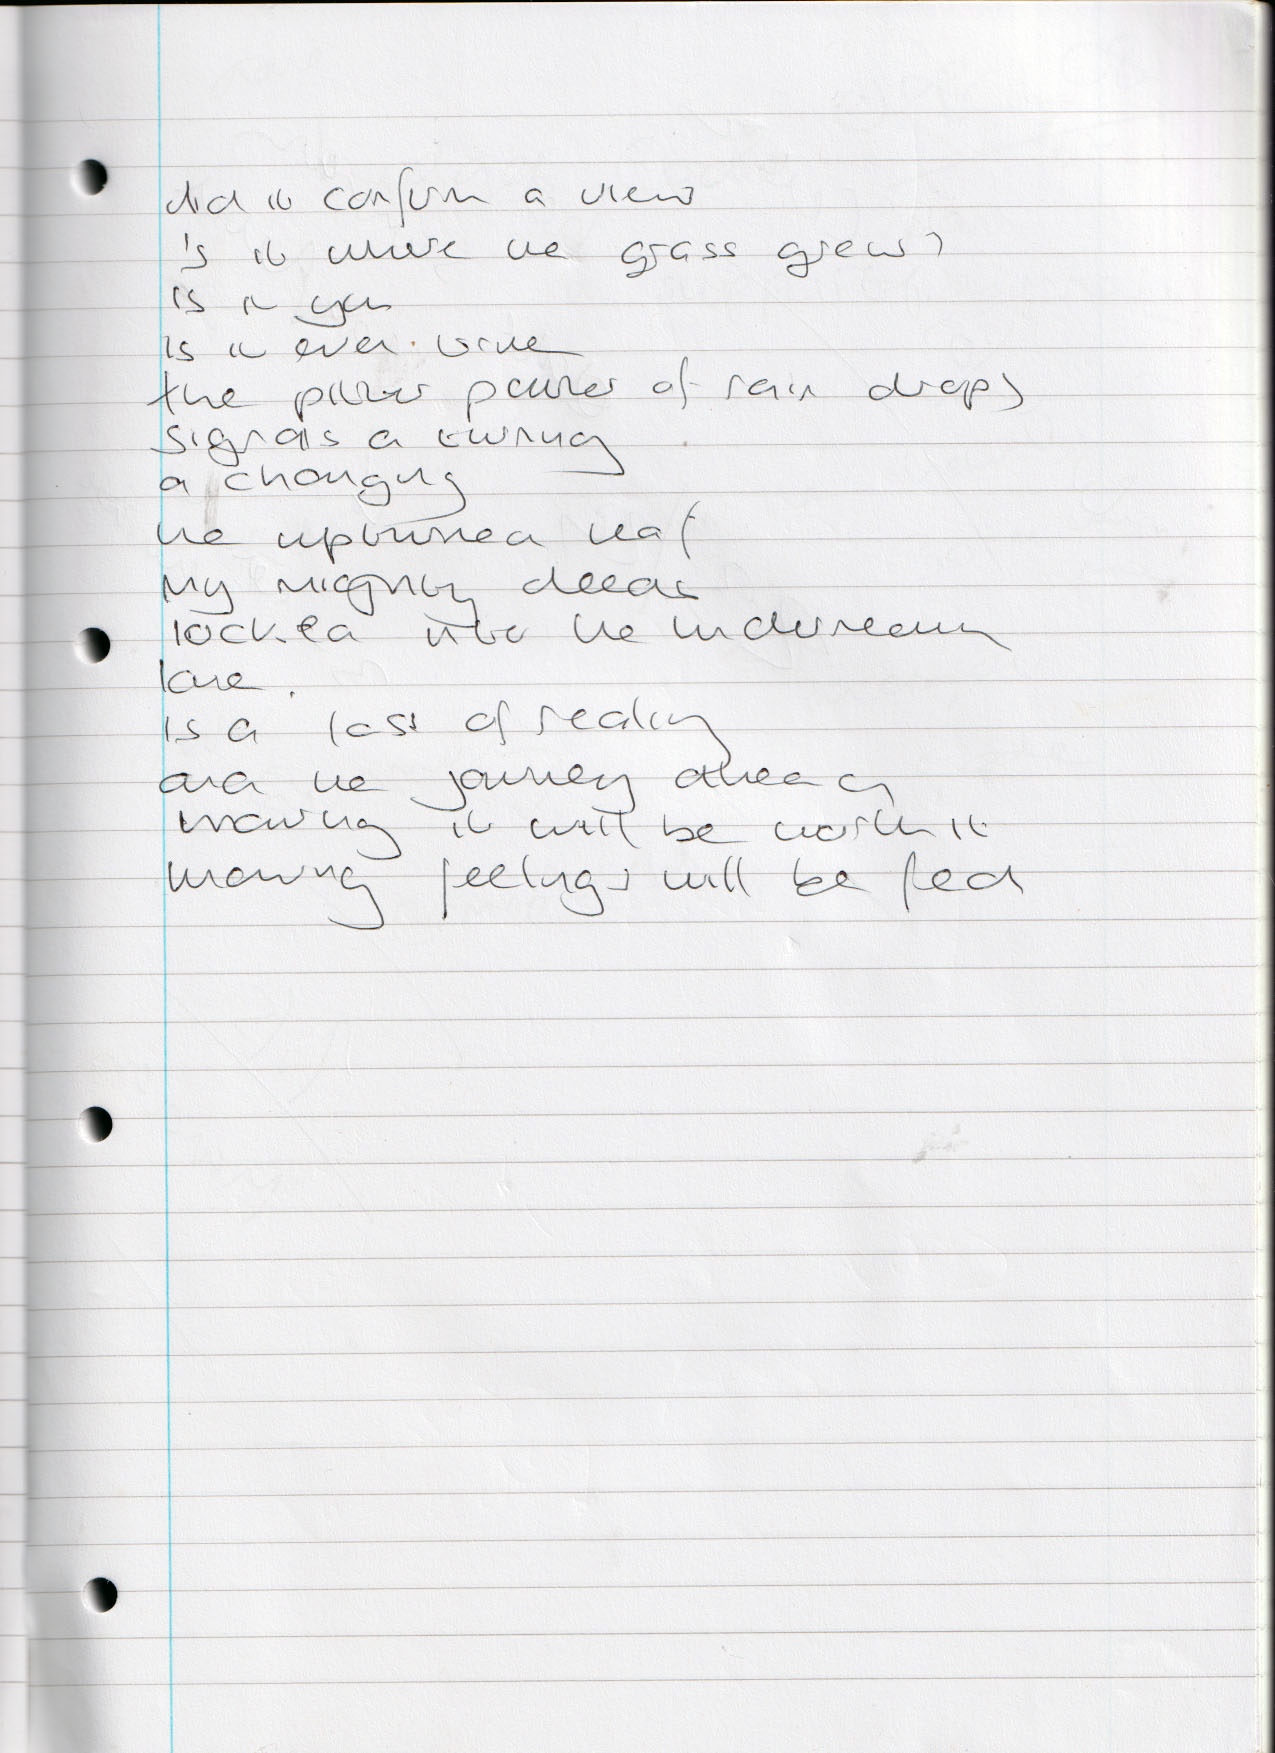 did it confirm a view
is it where the grass grew?
is it you
is it ever true
the pitter patter of rain drops
signals a turning
a changing
the upturned leaf
my mighty deeds
locked into the underneath
love.
is a loss of reality
and the journey ahead
knowing it will be worth it
knowing feelings will be fed